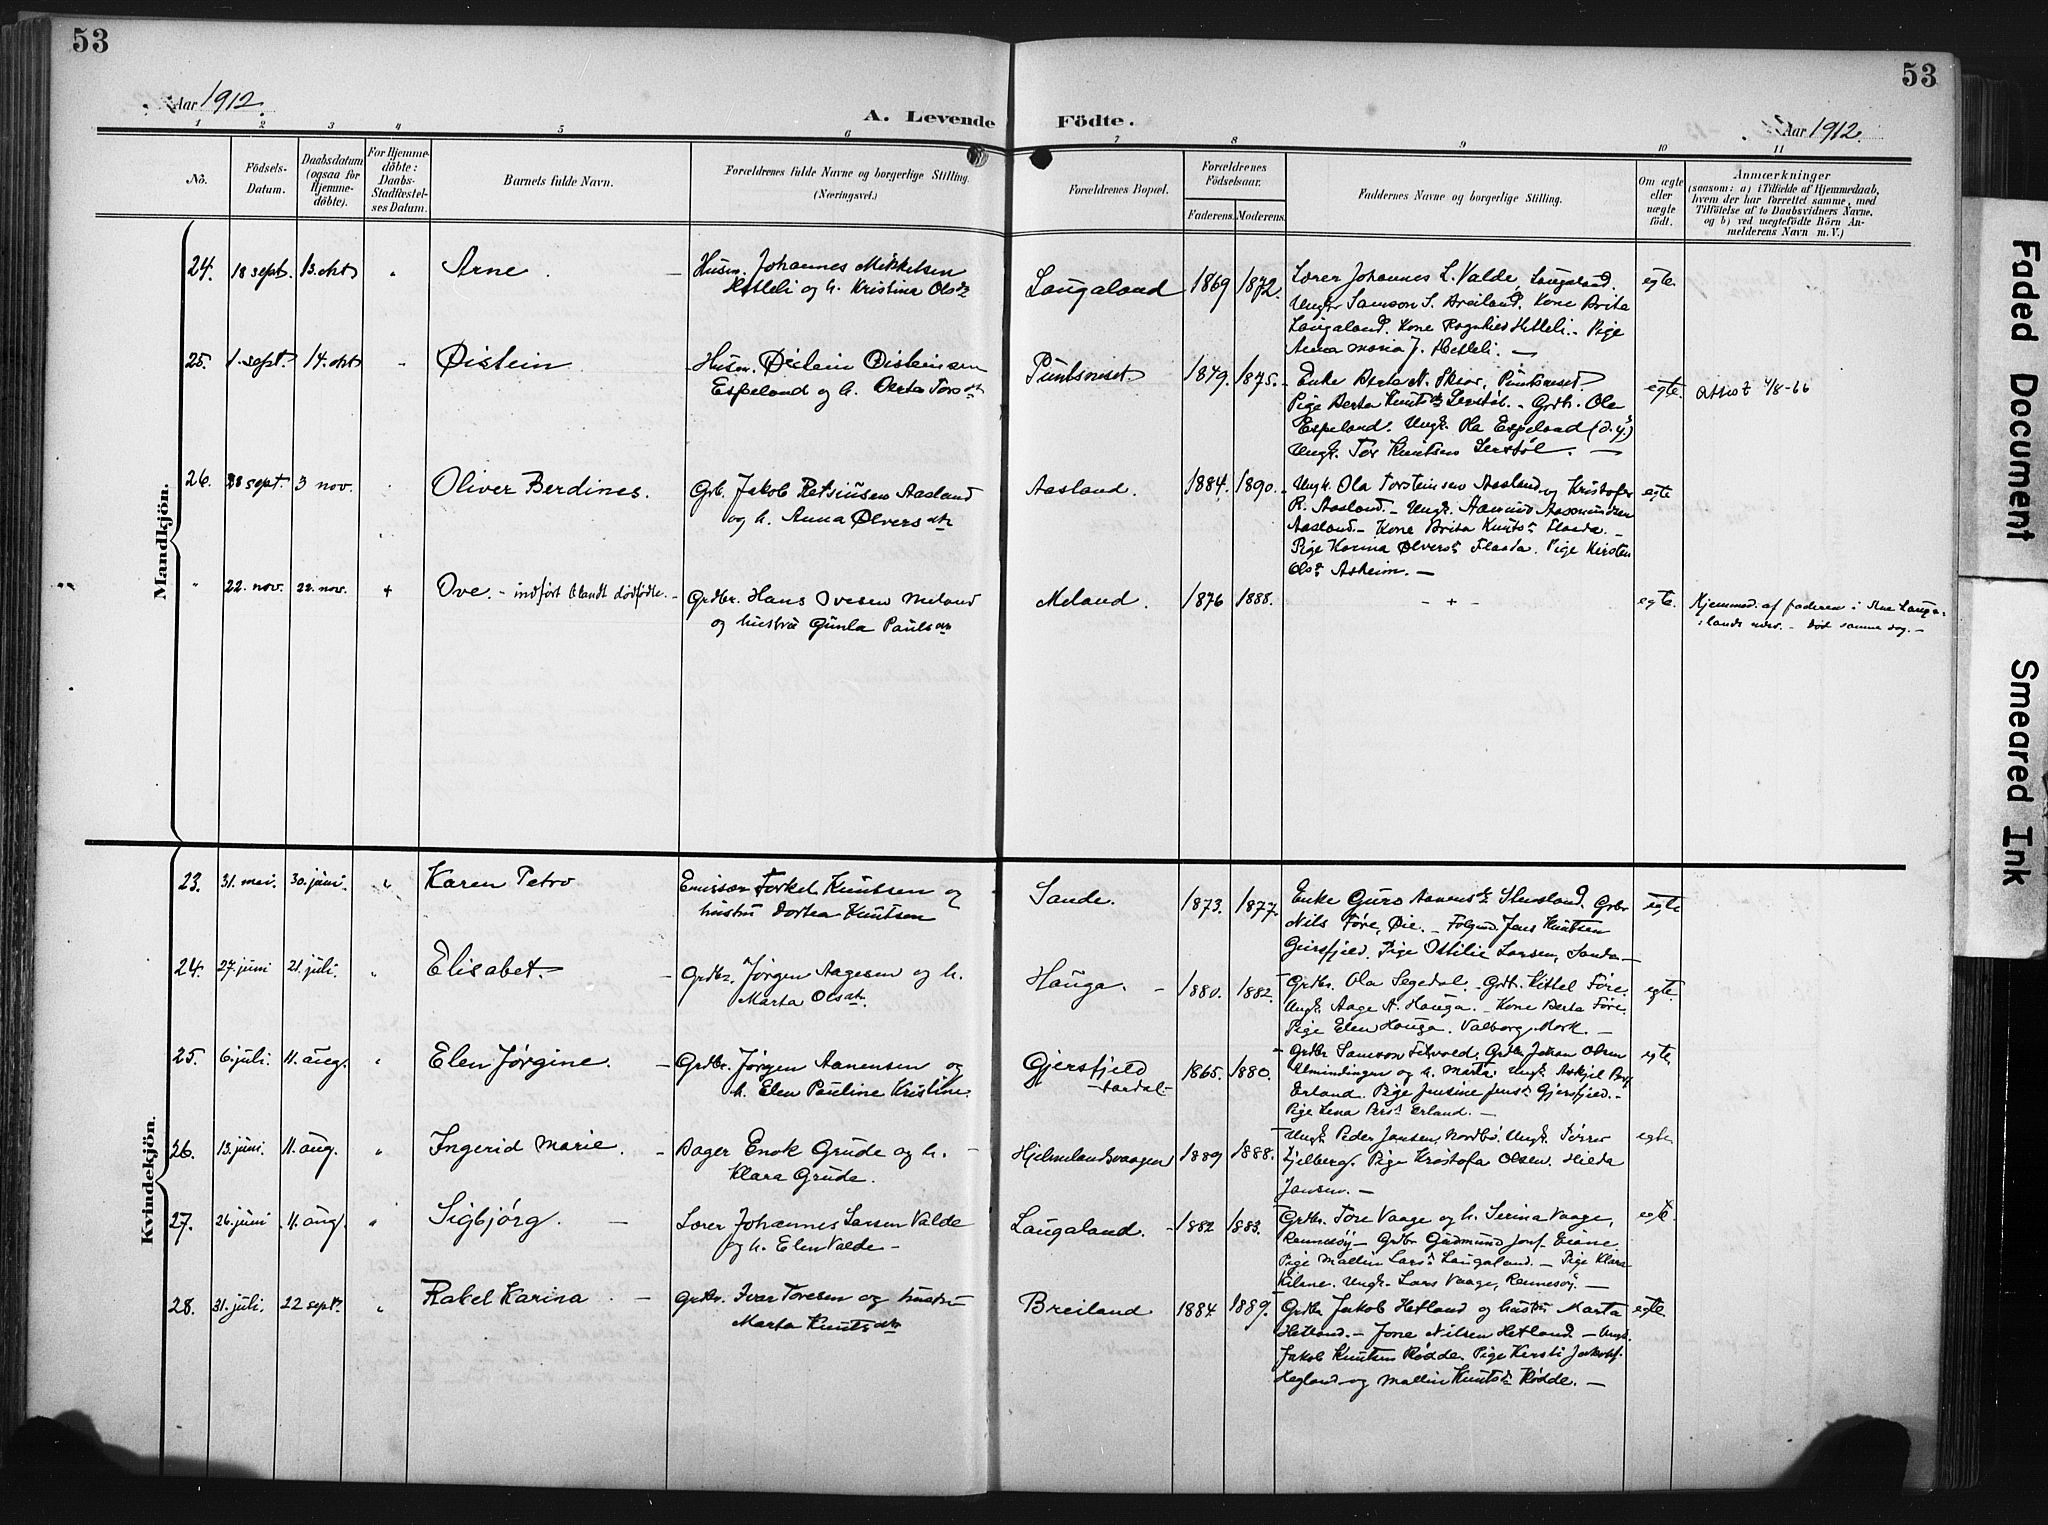 53
53
Aar 1912.
A. Levende Födte.
Aar 1912.
1 2 3 4 5 6 7 8 9 10 11
No.
Födsels-
Datum.
Daabsdatum
(ogsaa for
Hjemme-
döbte).
For Hjemme-
döbte:
Daabs-
Stadfæstel-
ses Datum.
Barnets fulde Navn.
Forældrenes fulde Navne og borgerlige Stilling.
(Næringsvei.)
Forældrenes Bopæl.
Forældrenes
Födselsaar.
Faderens. Moderens.
Faddernes Navne og borgerlige Stilling.
Om ægte
eller
uægte
födt.
Anmærkninger
(saasom: a) i Tilfælde af Hjemmedaab,
hvem der har forrettet samme, med
Tilföielse af to Daabsvidners Navne,
og b) ved uægtefödte Börn An-
melderens Navn m. V.)
Mandkjön.
24. 18 sept. 13. okt " Arne
Husm. Johannes Mikkelsen
Hetleli og h. Kristina Olsdr
Laugaland 1869 1872.
Lærer Johannes L. Valde, Laugaland.
Ungkr Samson S. Breiland. Kone Brita
Laugaland. Kone Ragnhild Hetleli. - Pige
Anna Maria J. Hetleli. -
egte.
25. 1. sept. 14. okt " Øistein.
Husm. Øistein Øisteinsen
Espeland og h. Berta Torsdtr
Puntsnæset. 1849. 1875.
Enke Berta N. Skor, Puntsnæset
Pige Berta Knutsdr . - Grdb. Ola
Espeland. Ungk. Ola Espeland (d.y.)
Ungk. Tor Knutsen . -
egte. Attest 4/8-66
26. 28 sept. 3 nov. Oliver Berdines.
Grb. Jakob Aasland
og h. Anna Ølversdtr
Aasland. 1884. 1890.
Ungk. Ola Torsteinsen Aasland og Kristofer
R. Aasland. - Ungk. Aasmundsen
Aasland. - Kone Brita Knutsdr Flaada. -
Pige Karina Ølversdr Flaada. Pige Kirsten
Olsdr Askeim. -
egte
" 22. nov. 22. nov. + Ove. - indført blandt dødfødte. -
Grdbr. Hans Ovesen Meland
og hustru Gunla Paulsdtr
Meland. 1876 1888.
- + -
egte. Hjemmed. af faderen i Laug-
. - Død samme dag. -
Kvindekjön.
23. 31. mai. 30. juni. " Karen Petro
Emissær Torkel Knutsen og
hustru Dortea Knutsen
Sande. 1873. 1877.
Enke Guro Aanensdr . Grbr
Nils Føre, Øie. - Jens Knutsen
Geirsfjeld. Pige Ottilie Larsen, Sande -
egte
24. 27. juni 21. juli. " Elisabet.
Grdbr. Jørgen Aagesen og h.
Marta Olsdtr.
Hauga. - 1880. 1882.
Grdbr. Ola Segedal. - Grdb. Kittel Føre.
Ungk. Aage A. Hauga. - Kone Berta Føre.
Pige Elen Hauga. Valborg Mork. -
egte.
25. 6. juli. 11. aug. " Elen Jørgine.
Grdbr. Jørgen Aanensen og
h. Elen Pauline Kristine.
Gjersfjeld
-Aardal- 1865. 1880.
Grdbr Samson Tetvold. Grdbr. Johan Olsen
Almindingen og h. Marta. Ungk. Askjel
Erland. Pige Jensine Jensdr Gjersfjeld. -
Pige Lena Persdr Erland. -
egte
26. 13. juni. 11. aug. " Ingerid Marie.
Bager Enok Grude og h. -
Klara Grude.
Hjelmelandsvaagen 1889 1888.
Ungk. Peder Jansen, Nordbø. Ungk. Tørres
Fjelberg. Pige Kristofa Olsen. Hilda
Jansen. -
egte
27. 26. juni 11. aug. " Sigbjørg.
Lærer Johannes Larsen Valde
og h. Elen Valde -
Laugaland. - 1882 1883.
Grdbr. Tore Vaage og h. Serina Vaage,
Rennesøy - Grdbr Gudmund Eiane
Pige Mallin Larsdr Laugaland. - Pige Klara
Kilane. Ungk. Lars Vaage, Rennesøy. -
egte.
28. 31. juli. 22 sept. " Rakel Karina
Grdbr. Ivar Toresen og hustru
Marta Knutsdtr
Breiland 1884 1889.
Grdbr Jakob Hetland og hustru Marta
Hetland. - Jone Nilsen Hetland - Ungk.
Jakob Knutsen Rødde. Pige Kersti Jakobs.
Hegland og Mallin Knutsdr Rødde. -
egte
Faded Document
Smeared Ink